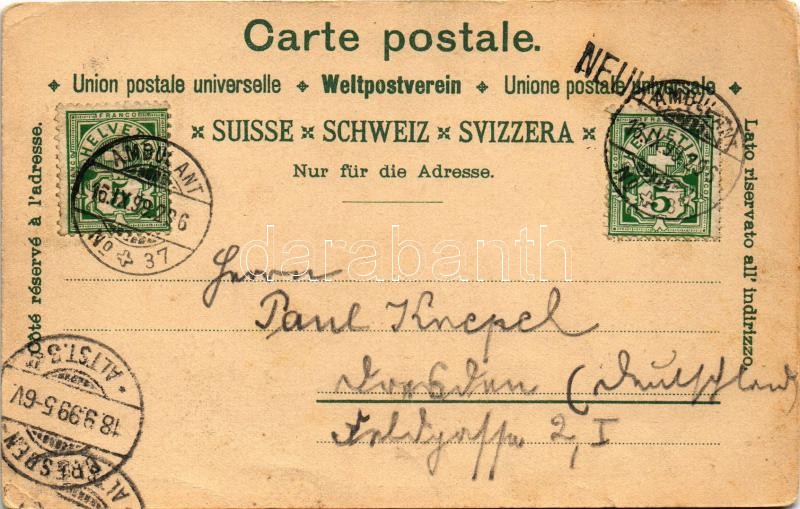 Carte postale.
Union postale universelle ✦ Weltpostverein ✦ Unione postale universale
SUISSE × SCHWEIZ × SVIZZERA ×
Nur für die Adresse.
côté réservé à l'adresse.
Lato riservato all' indirizzo.
FRANCO
HELVETIA
5
AMBULANT
No 37
FRANCO
HELVETIA
5
AMBULANT
NEUH
Herrn
Paul Knepel
Dresden (Deutschland)
2, I
ALTST. 3
18.9.99.5-6V
DRESDEN
DRESDEN
ALT
darabanth